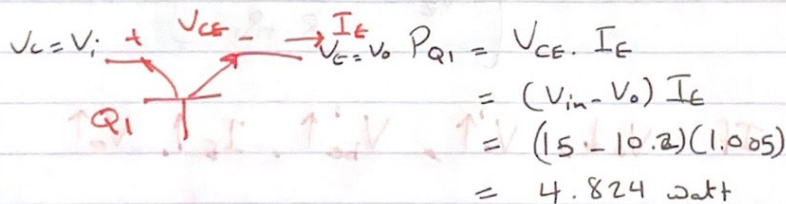 Vc = Vi + VCE - → IE
VE = Vo PQ1 = VCE . IE
Q1 = (Vin - Vo) IE
= (15 - 10.2)(1.005)
= 4.824 watt